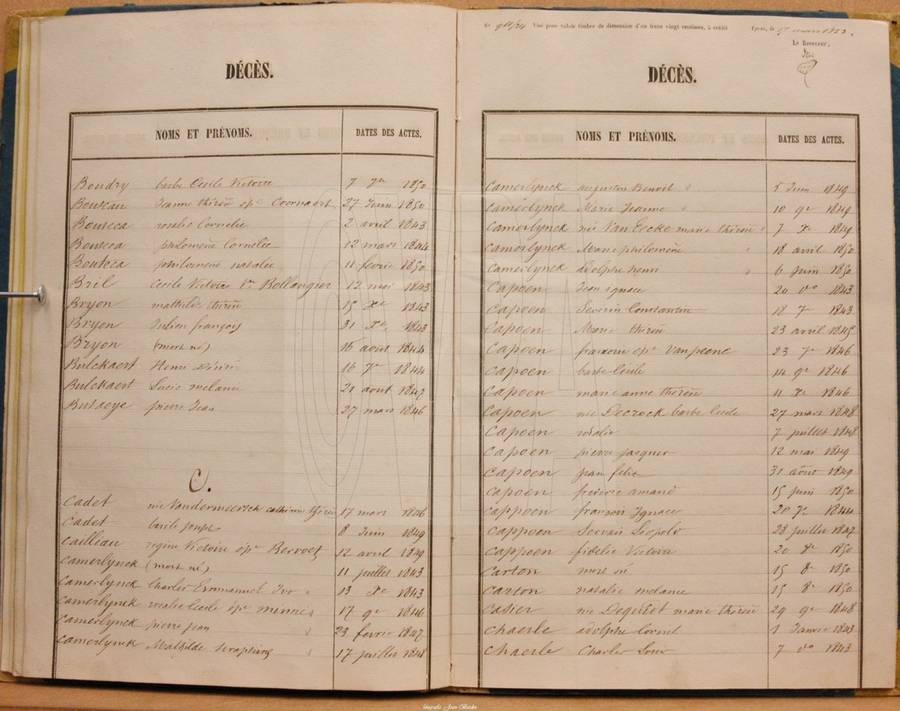 DÉCÈS.
NOMS ET PRÉNOMS. DATES DES ACTES.
Boudry barbe Cecile Victoire 7 7re 1850
Bouseau Jeanne thérèse 27 Juin 1850
Bouseca rosalie Cornélie 2 avril 1843
Bouseca philomène Cornélie 12 mars 1844
Bouteca philomène natalie 11 fevrie 1850
Bril Cecile Victoire Bellangier 12 mai 1843
Bryon mathilde thérèse 15 Xe 1843
Bryon Julien françois 31 Xe 1843
Bryon (mort né) 16 août 1844
Bulckaert Henri Désiré 16 7re 1844
Bulckaert Lucie mélanie 21 aout 1847
Butseye pierre Jean 27 mars 1846
C.
Cadet née Vandermeersch catherine thérèse 17 mars 1846
Cadet basile joseph 8 Juin 1849
Cailleau regine Victoire Bervoet 12 avril 1849
Camerlynck (mort né) 11 juillet 1843
Camerlynck Charles Emmanuel Ivo 13 Xe 1843
Camerlynck rosalie Cecile 17 9re 1846
Camerlynck pierre jean 23 fevrie 1847
Camerlynck Mathilde seraphine 17 juillet 1848
Vise pour valoir timbre de dimension d'un franc vingt centimes, à crédit Ypres, le mars 1853.
Le Receveur,
DÉCÈS.
NOMS ET PRÉNOMS. DATES DES ACTES.
Camerlynck augustin Benoit 5 Juin 1849
Camerlynck Marie Jeanne 10 9re 1849
Camerlynck née Van Eecke marie thérèse 7 Xe 1849
Camerlynck Marie philomène 18 avril 1850
Camerlynck adolphe henri 6 Juin 1850
Capoen Jean ignace 1843
Capoen Severin Constantin 18 7re 1843
Capoen Marie thérèse 23 avril 1845
Capoen 23 7re 1846
Capoen barbe Cécile 14 9re 1846
Capoen marie anne thérèse 11 Xe 1846
Capoen née Decrock barbe Cecile 27 mars 1848
Capoen rosalie 7 juillet 1848
Capoen pierre jacques 12 mai 1849
Capoen jean felix 31 août 1849
Capoen fréderic amand 15 juin 1850
Cappoen francois Ignace 20 7re 1844
Cappoen Servais Leopold 28 juillet 1847
Cappoen fidélie Victoire 20 8re 1850
Carton mort né 15 8re 1850
Carton natalie mélanie 15 8re 1850
Casier née marie thérèse 29 9re 1848
Chaerle adolphe Cornil 1 Janvie 1843
Chaerle Charles Louis 7 1843